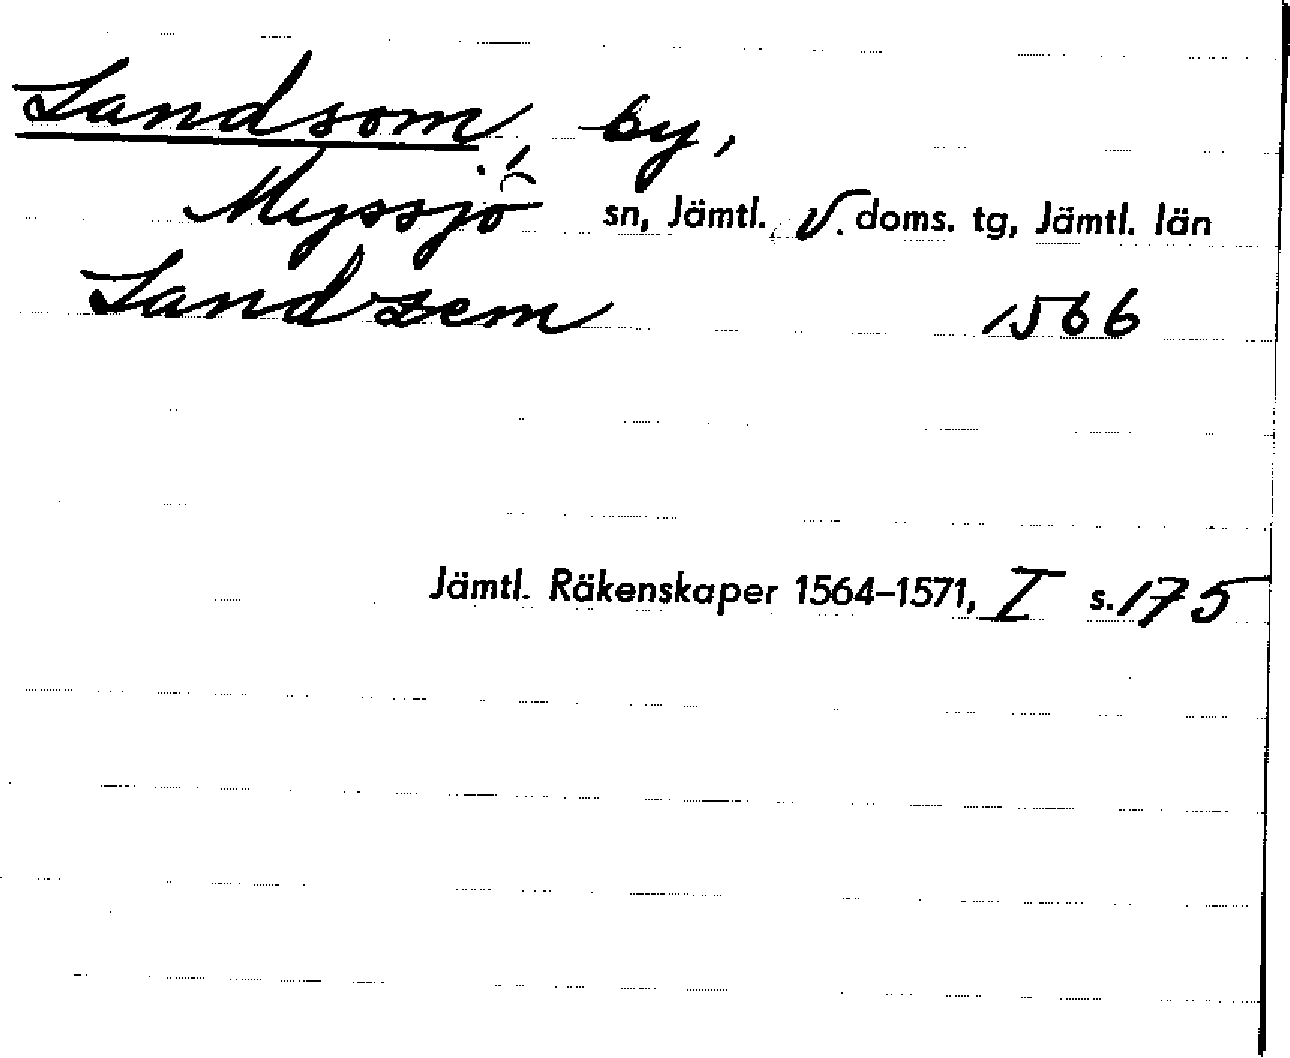 Landsom, by,
Myssjö sn, Jämtl. v. doms. tg, Jämtl. län
Landzem 1566
Jämtl. Räkenskaper 1564–1571, I s. 175